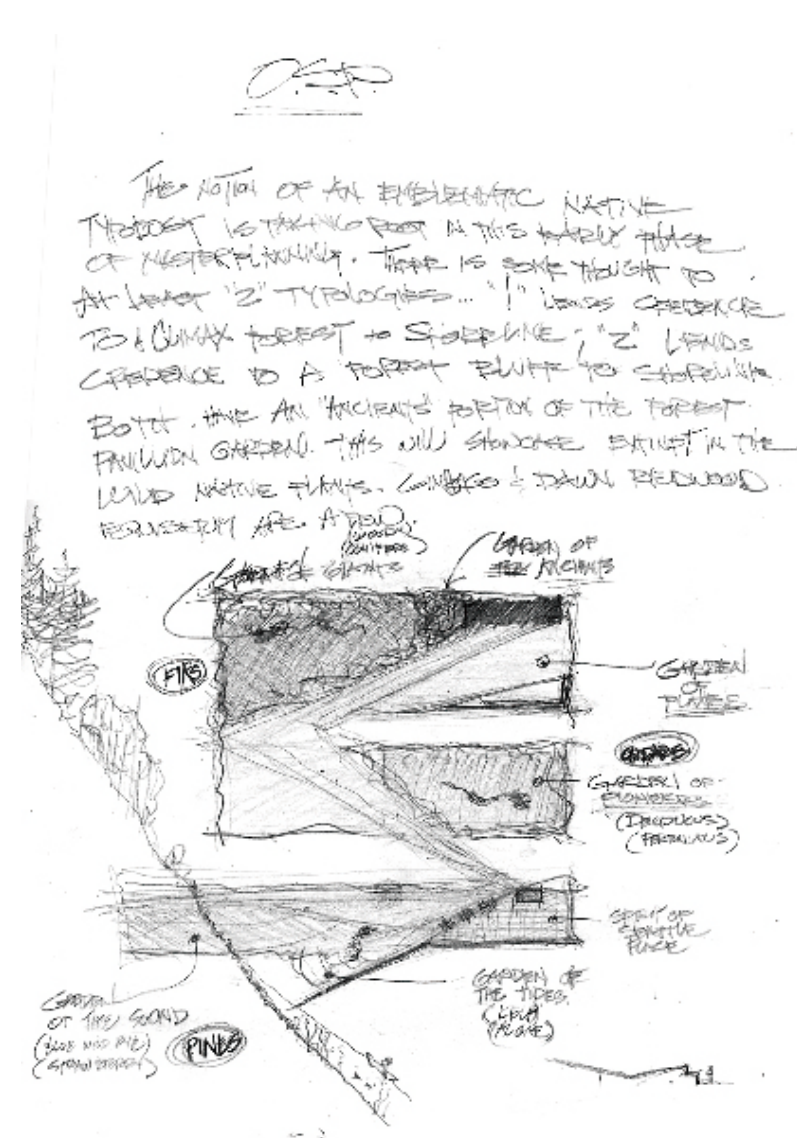 O.S.P.
THE NOTION OF AN EMBLEMATIC NATIVE
IS TAKING ROOT IN THIS EARLY PHASE
OF MASTERPLANNING. THERE IS SOME THOUGHT TO
AT LEAST "2" TYPOLOGIES... "1" LENDS CREDENCE
TO A CLIMAX FOREST TO SHORELINE; "2" LENDS
CREDENCE TO A FOREST BLUFF TO SHORELINE.
BOTH HAVE AN "ANCIENTS" PORTION OF THE FOREST
PAVILLION GARDEN. THIS WILL SHOWCASE EXTINCT IN THE
WILD NATIVE PLANTS. GINKGO & DAWN REDWOOD
ARE A FEW.
CONIFERS
GIANTS
GARDEN OF
ANCIENTS
FIRS
GARDEN
OF
GARDEN OF
PIONEERS
(DECIDUOUS)
SPIRIT OF
PLACE
GARDEN OF
THE TIDES
GARDEN
OF THE SOUND
PINES